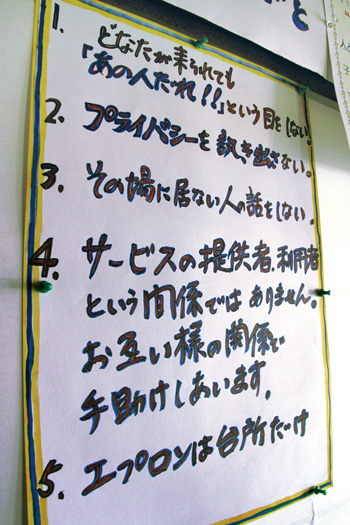 と
1. どなたが来られても
「あの人だれ!!」という目をしない。
2. プライバシーを訊き出さない。
3. その場に居ない人の話をしない。
4. サービスの提供者、利用者
という関係ではありません。
お互い様の関係で
手助けしあいます。
5. エプロンは台所だけ